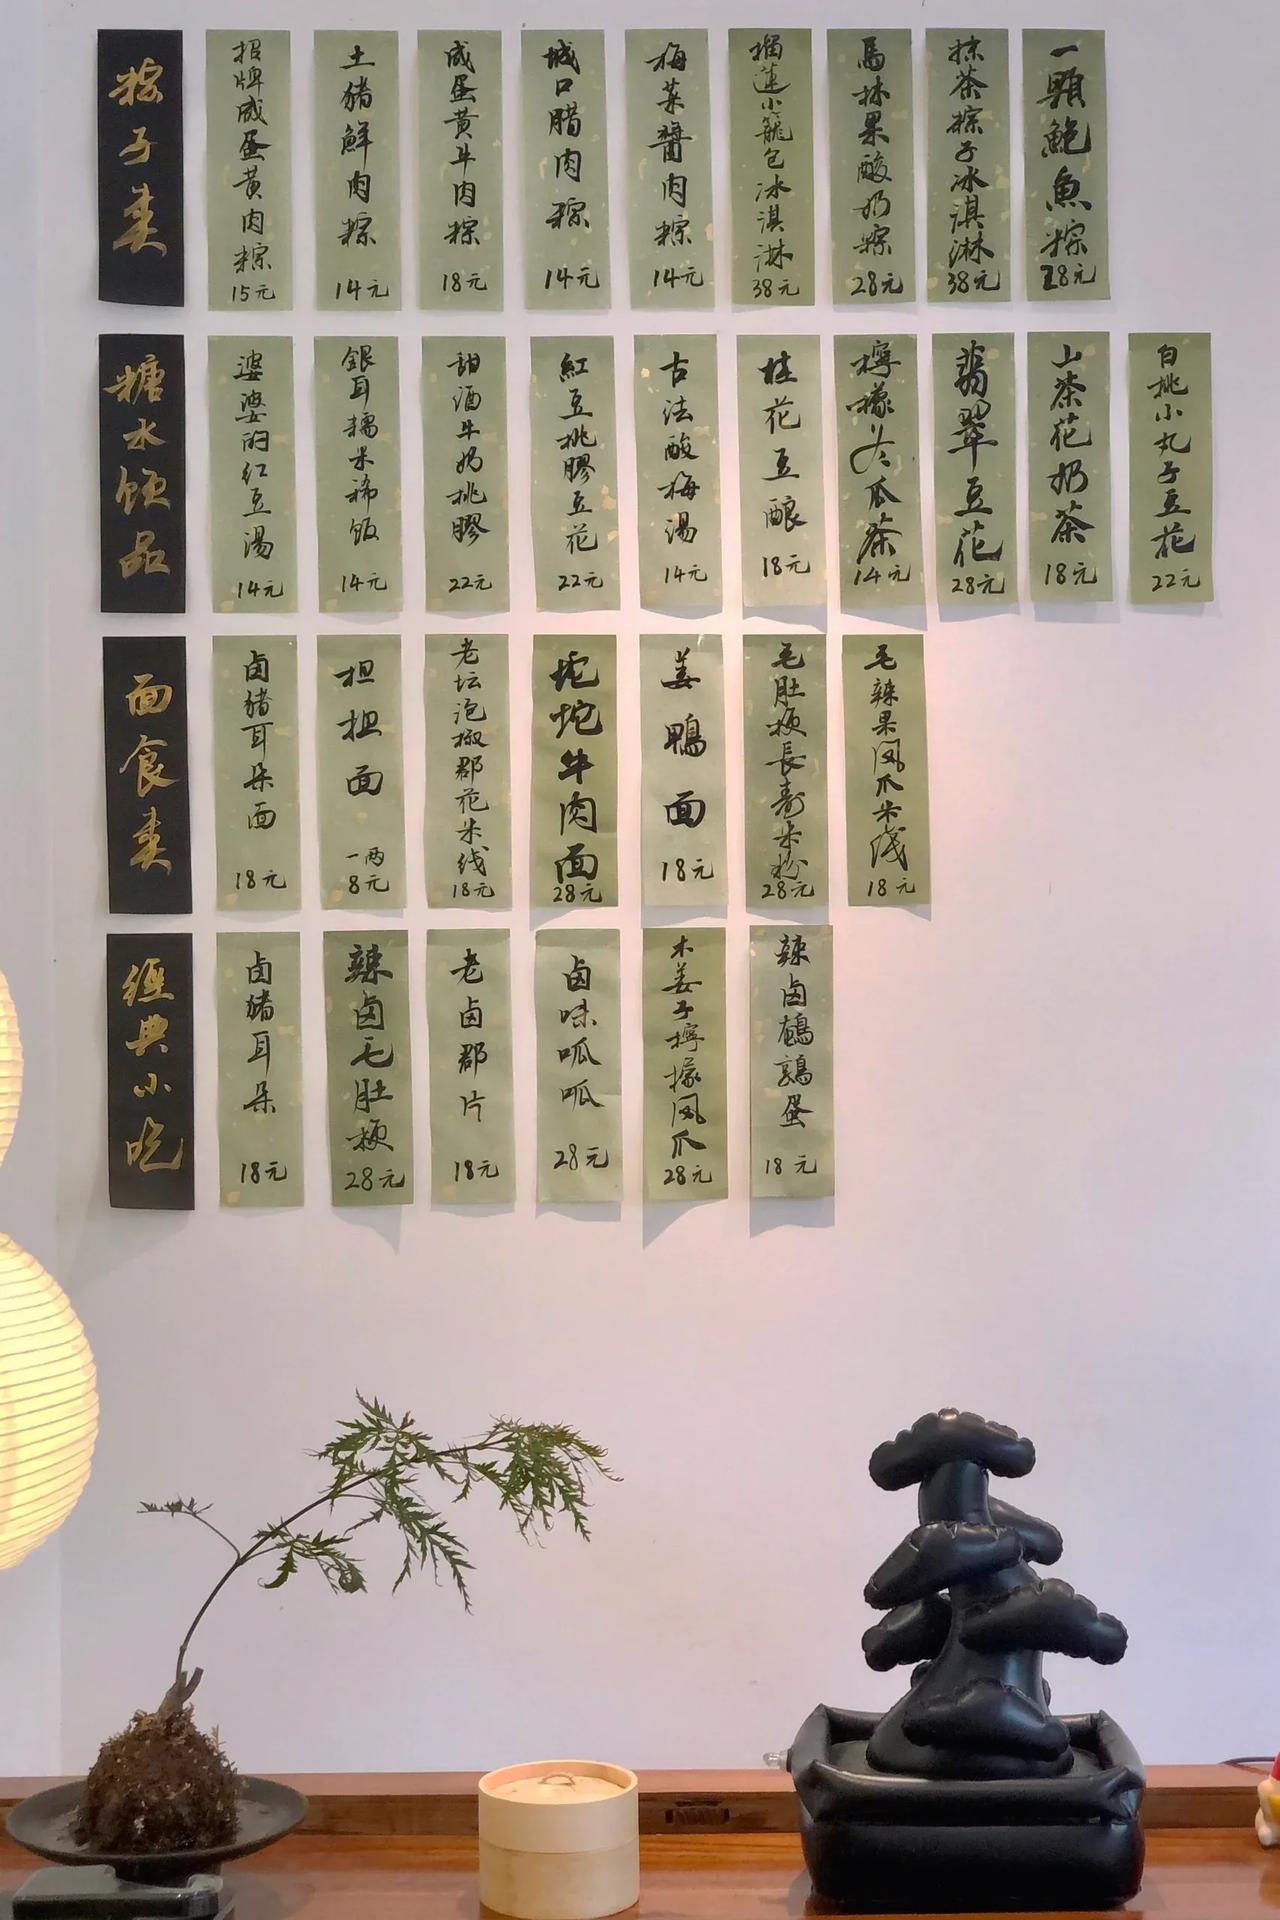 粽子类
招牌咸蛋黄肉粽
15元
土豬鮮肉粽
14元
咸蛋黄牛肉粽
18元
城口腊肉粽
14元
梅菜醬肉粽
14元
榴蓮小籠包冰淇淋
38元
馬林果酸奶粽
28元
抹茶粽子冰淇淋
38元
一顆鮑魚粽
28元
糖水饮品
婆婆的红豆湯
14元
銀耳糯米稀饭
14元
甜酒牛奶桃膠
22元
紅豆桃膠豆花
22元
古法酸梅湯
14元
桂花豆酿
18元
檸檬冬瓜茶
14元
翡翠豆花
28元
山茶花奶茶
18元
白桃小丸子豆花
22元
面食类
卤豬耳朵面
18元
担担面
一两
8元
老坛泡椒郡花米线
18元
坨坨牛肉面
28元
姜鴨面
18元
毛肚梗長寿米粉
28元
毛辣果凤爪米线
18元
經典小吃
卤豬耳朵
18元
辣卤毛肚梗
28元
老卤郡片
18元
卤味呱呱
28元
木姜子檸檬凤爪
28元
辣卤鵪鶉蛋
18元